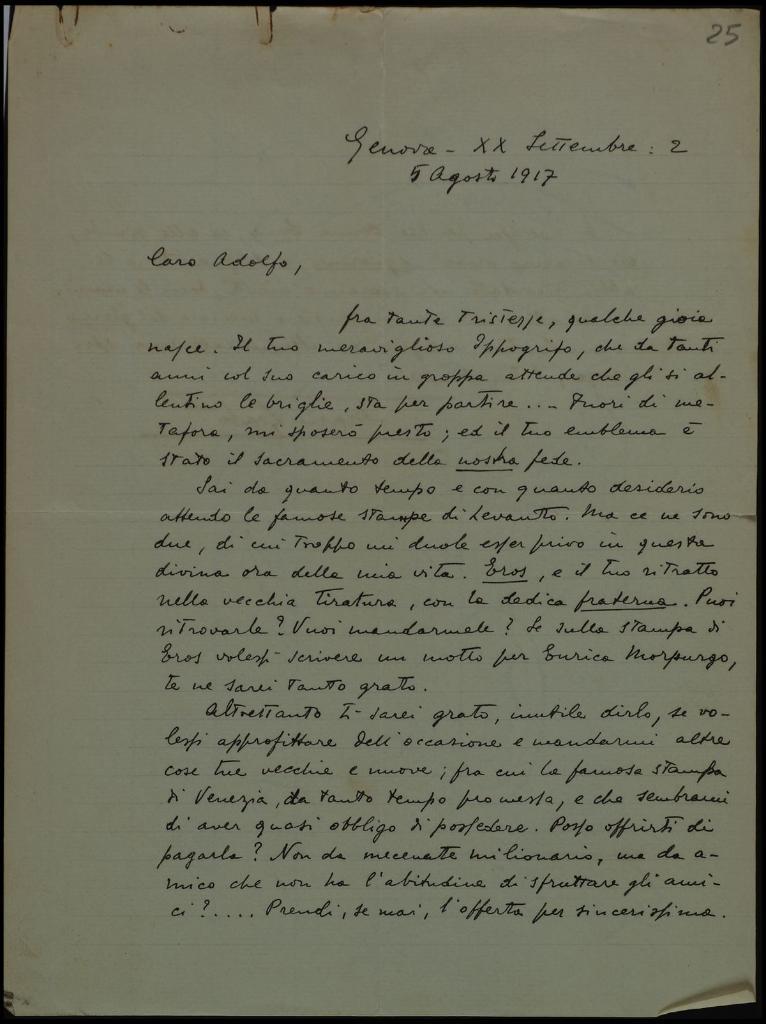 25
Genova - XX Settembre : 2
5 Agosto 1917
Caro Adolfo,
fra tante tristezze, qualche gioia
nasce. Il tuo meraviglioso Ippogrifo, che da tanti
anni col suo carico in groppa attende che gli si al-
lentino le briglie, sta per partire.... Fuori di me-
tafora, mi sposerò presto; ed il tuo emblema è
stato il sacramento della nostra fede.
Sai da quanto tempo e con quanto desiderio
attendo le famose stampe di Levanto. Ma ce ne sono
due, di cui troppo mi duole esser privo in questa
divina ora della mia vita. Eros, e il tuo ritratto
nella vecchia tiratura, con la dedica fraterna. Puoi
ritrovarle? Vuoi mandarmele? Se sulla stampa di
Eros volessi scrivere un motto per Enrica Morpurgo,
te ne sarei tanto grato.
Altrettanto ti sarei grato, inutile dirlo, se vo-
lessi approfittare dell'occasione e mandarmi altre
cose tue vecchie e nuove; fra cui la famosa stampa
di Venezia, da tanto tempo promessa, e che sembrami
di aver quasi obbligo di possedere. Posso offrirti di
pagarla? Non da mecenate milionario, ma da a-
mico che non ha l'abitudine di sfruttare gli ami-
ci?.... Prendi, se mai, l'offerta per sincerissima.